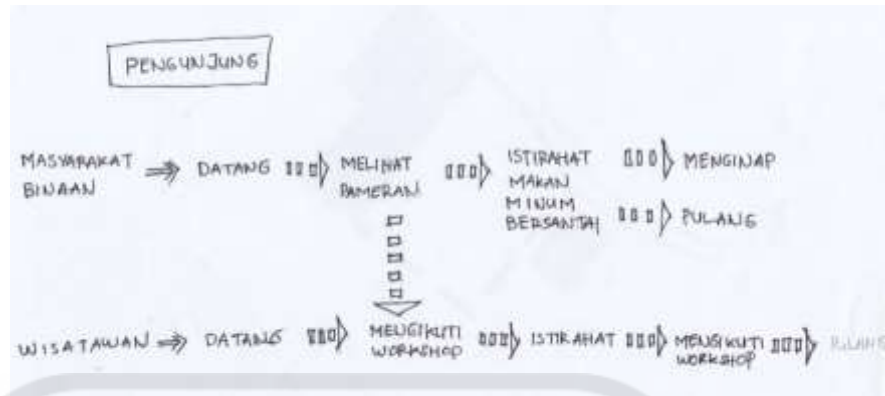 PENGUNJUNG
MASYARAKAT BINAAN
DATANG
MELIHAT PAMERAN
ISTIRAHAT
MAKAN
MINUM
BERSANTAI
MENGINAP
PULANG
WISATAWAN
DATANG
MENGIKUTI WORKSHOP
ISTIRAHAT
MENGIKUTI WORKSHOP
PULANG